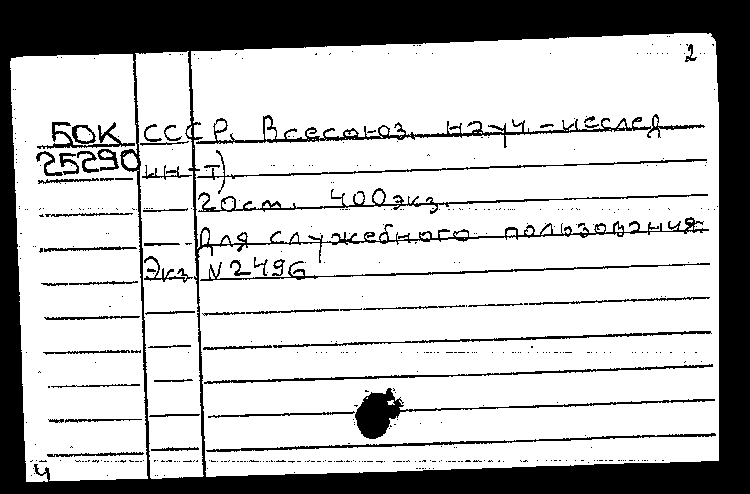 2
БОК СССР. Всесоюз. науч.-исслед
25290 ин-т).
20см. 400экз.
Для служебного пользования
Экз. N2496.
4